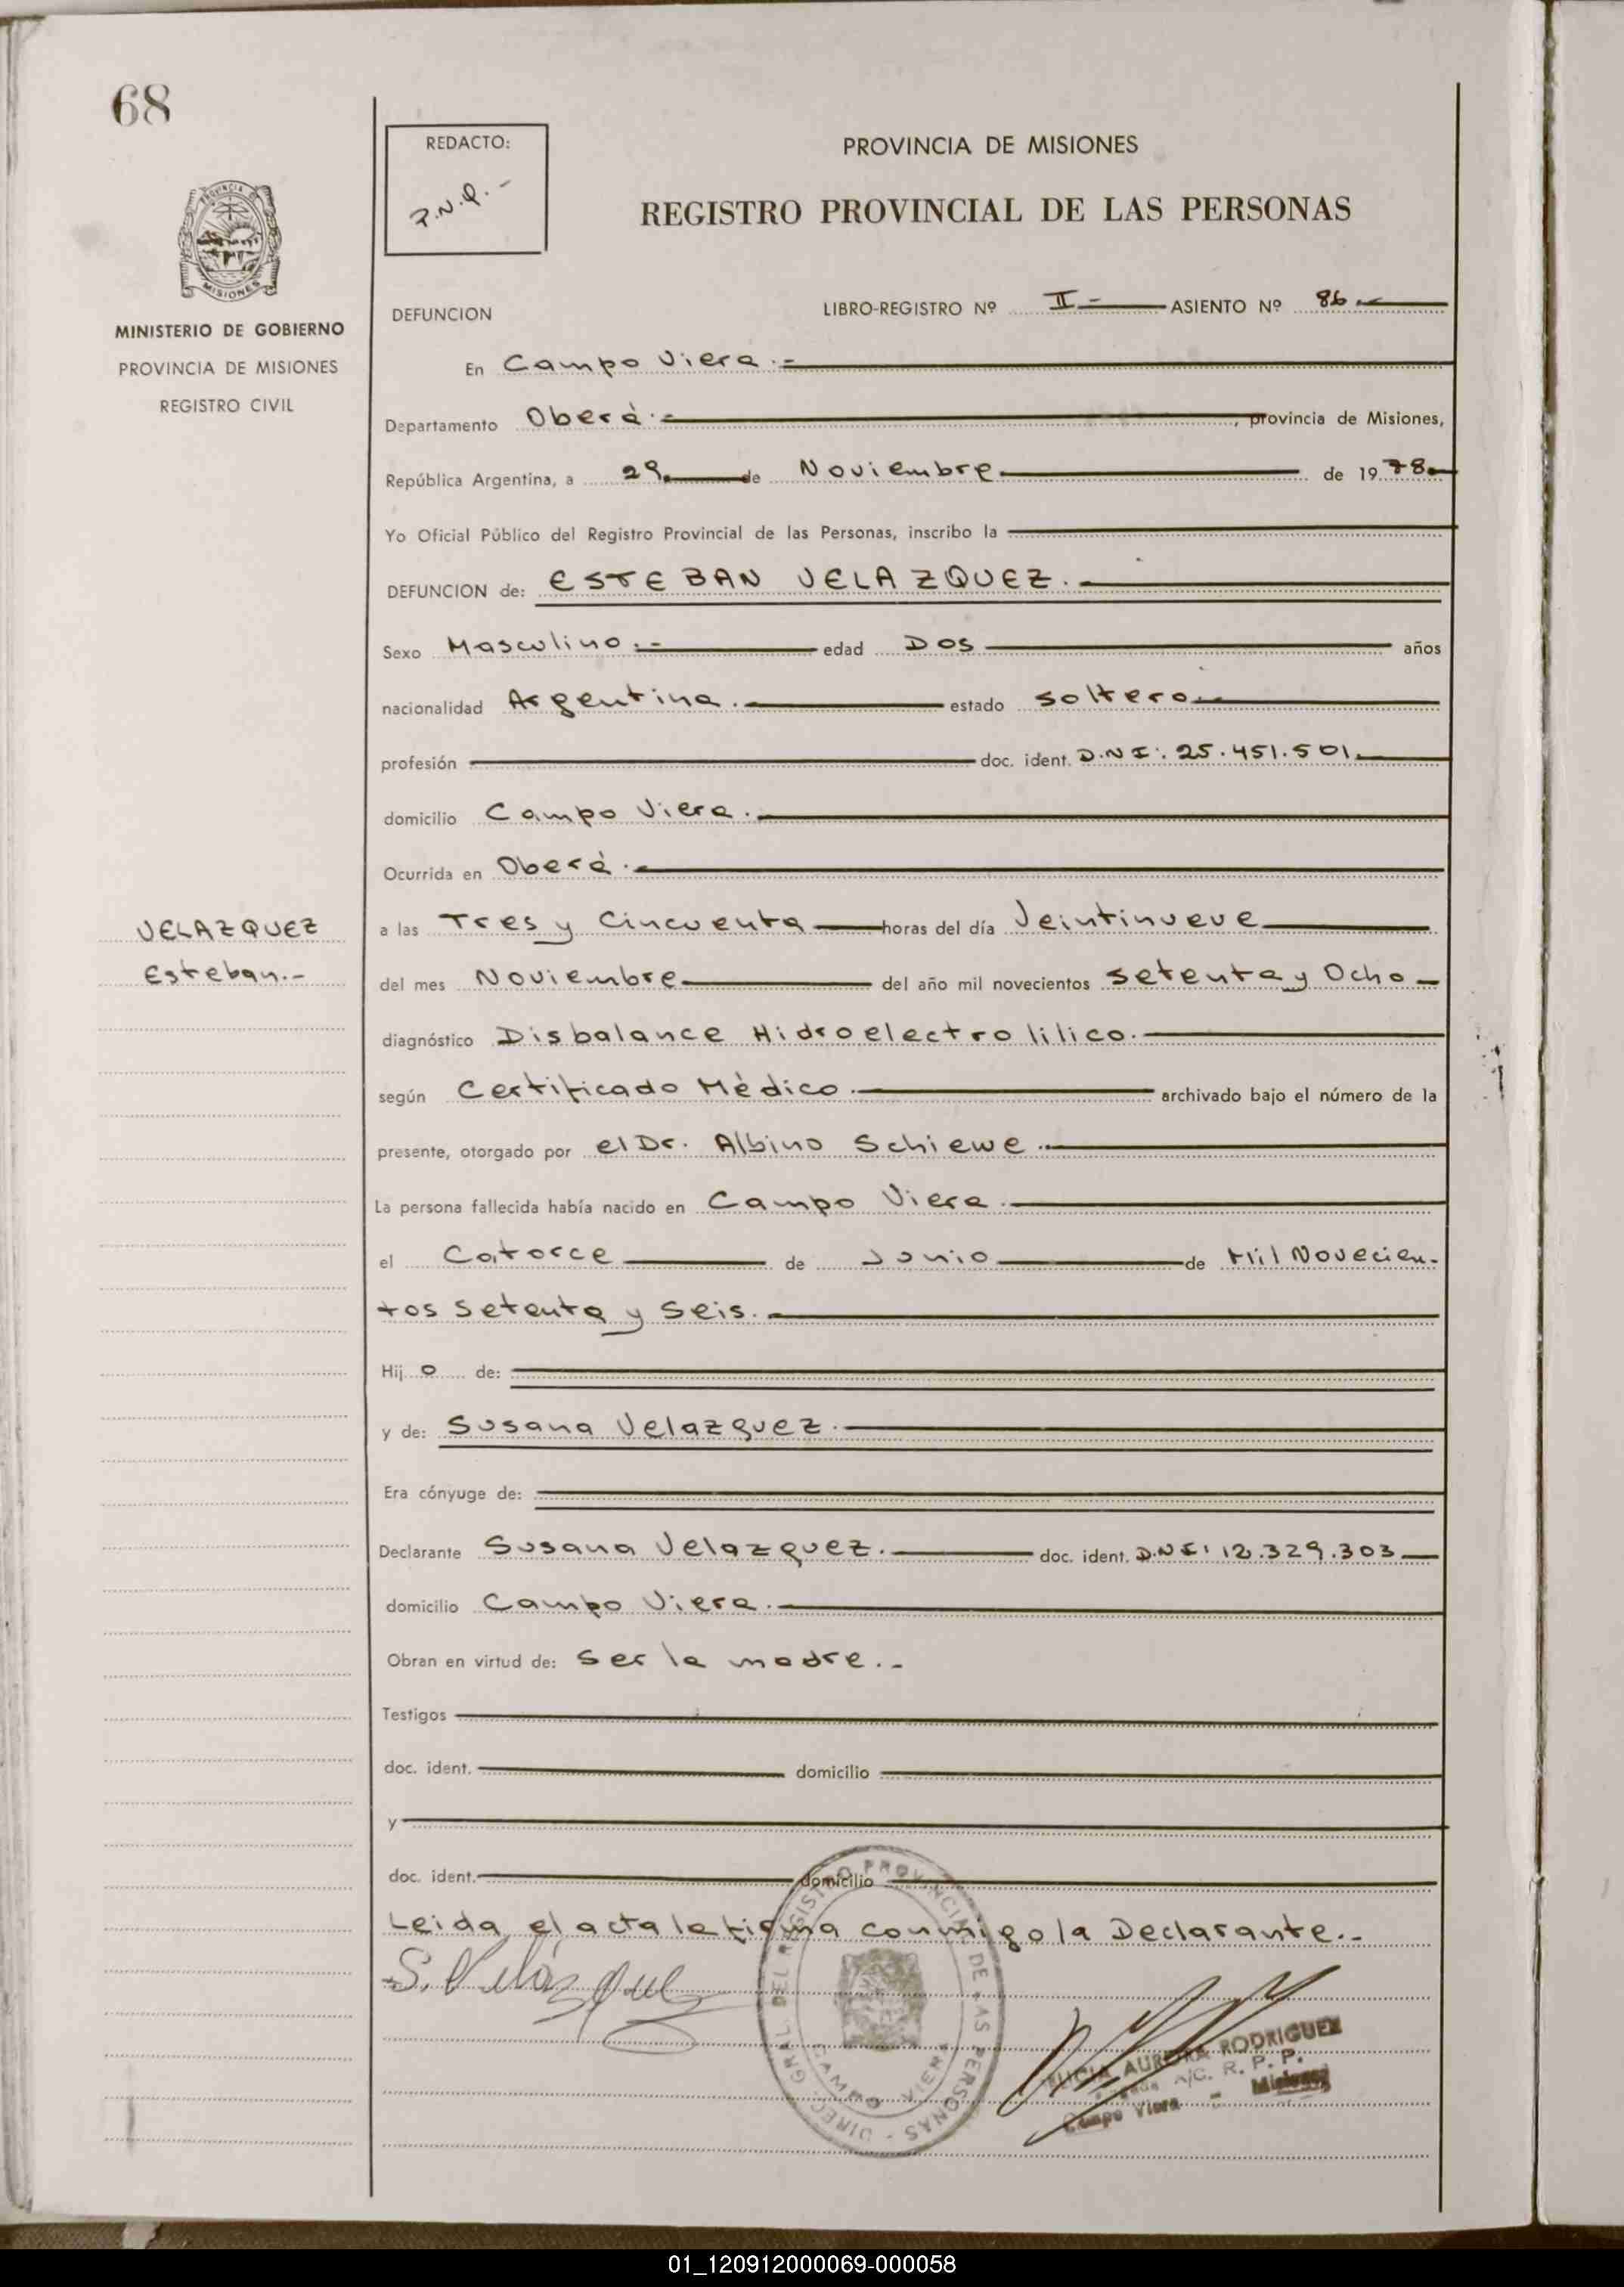 68
REDACTO:
PROVINCIA DE MISIONES
REGISTRO PROVINCIAL DE LAS PERSONAS
PROVINCIA DE
MISIONES
MINISTERIO DE GOBIERNO
PROVINCIA DE MISIONES
REGISTRO CIVIL
DEFUNCION LIBRO-REGISTRO Nº II - ASIENTO Nº 86
En Campo Viera.-
Departamento Oberà.-, provincia de Misiones,
República Argentina, a 29 de Noviembre de 1978
Yo Oficial Público del Registro Provincial de las Personas, inscribo la
DEFUNCION de: ESTEBAN VELAZQUEZ.
Sexo Masculino.- edad Dos años
nacionalidad Argentina. estado soltero
profesión doc. ident. D.N.I: 25.451.501.
domicilio Campo Viera.
Ocurrida en Oberà.
a las Tres y Cincuenta horas del día Veintinueve
VELAZQUEZ
Esteban.-
del mes Noviembre del año mil novecientos setenta y Ocho
diagnóstico Disbalance Hidroelectrolilico.
según Certificado Mèdico archivado bajo el número de la
presente, otorgado por el Dr. Albino Schiewe.
La persona fallecida había nacido en Campo Viera
el Catorce de Junio de Mil Novecien-
tos Setenta y Seis.
Hij o de:
y de: Susana Velazquez.
Era cónyuge de:
Declarante Susana Velazquez. doc. ident. D.N.I: 12.329.303
domicilio Campo Viera.
Obran en virtud de: Ser la madre.-
Testigos
doc. ident. domicilio
y
doc. ident. domicilio
Leida el acta la firma conmigo la Declarante.-
S. Velázquez
DIREC. GRAL. DEL REGISTRO PROVINCIAL DE LAS PERSONAS -
CAMPO VIERA
AURORA RODRIGUEZ
A/C. R. P. P.
Campo Viera - Misiones
01_120912000069-000058